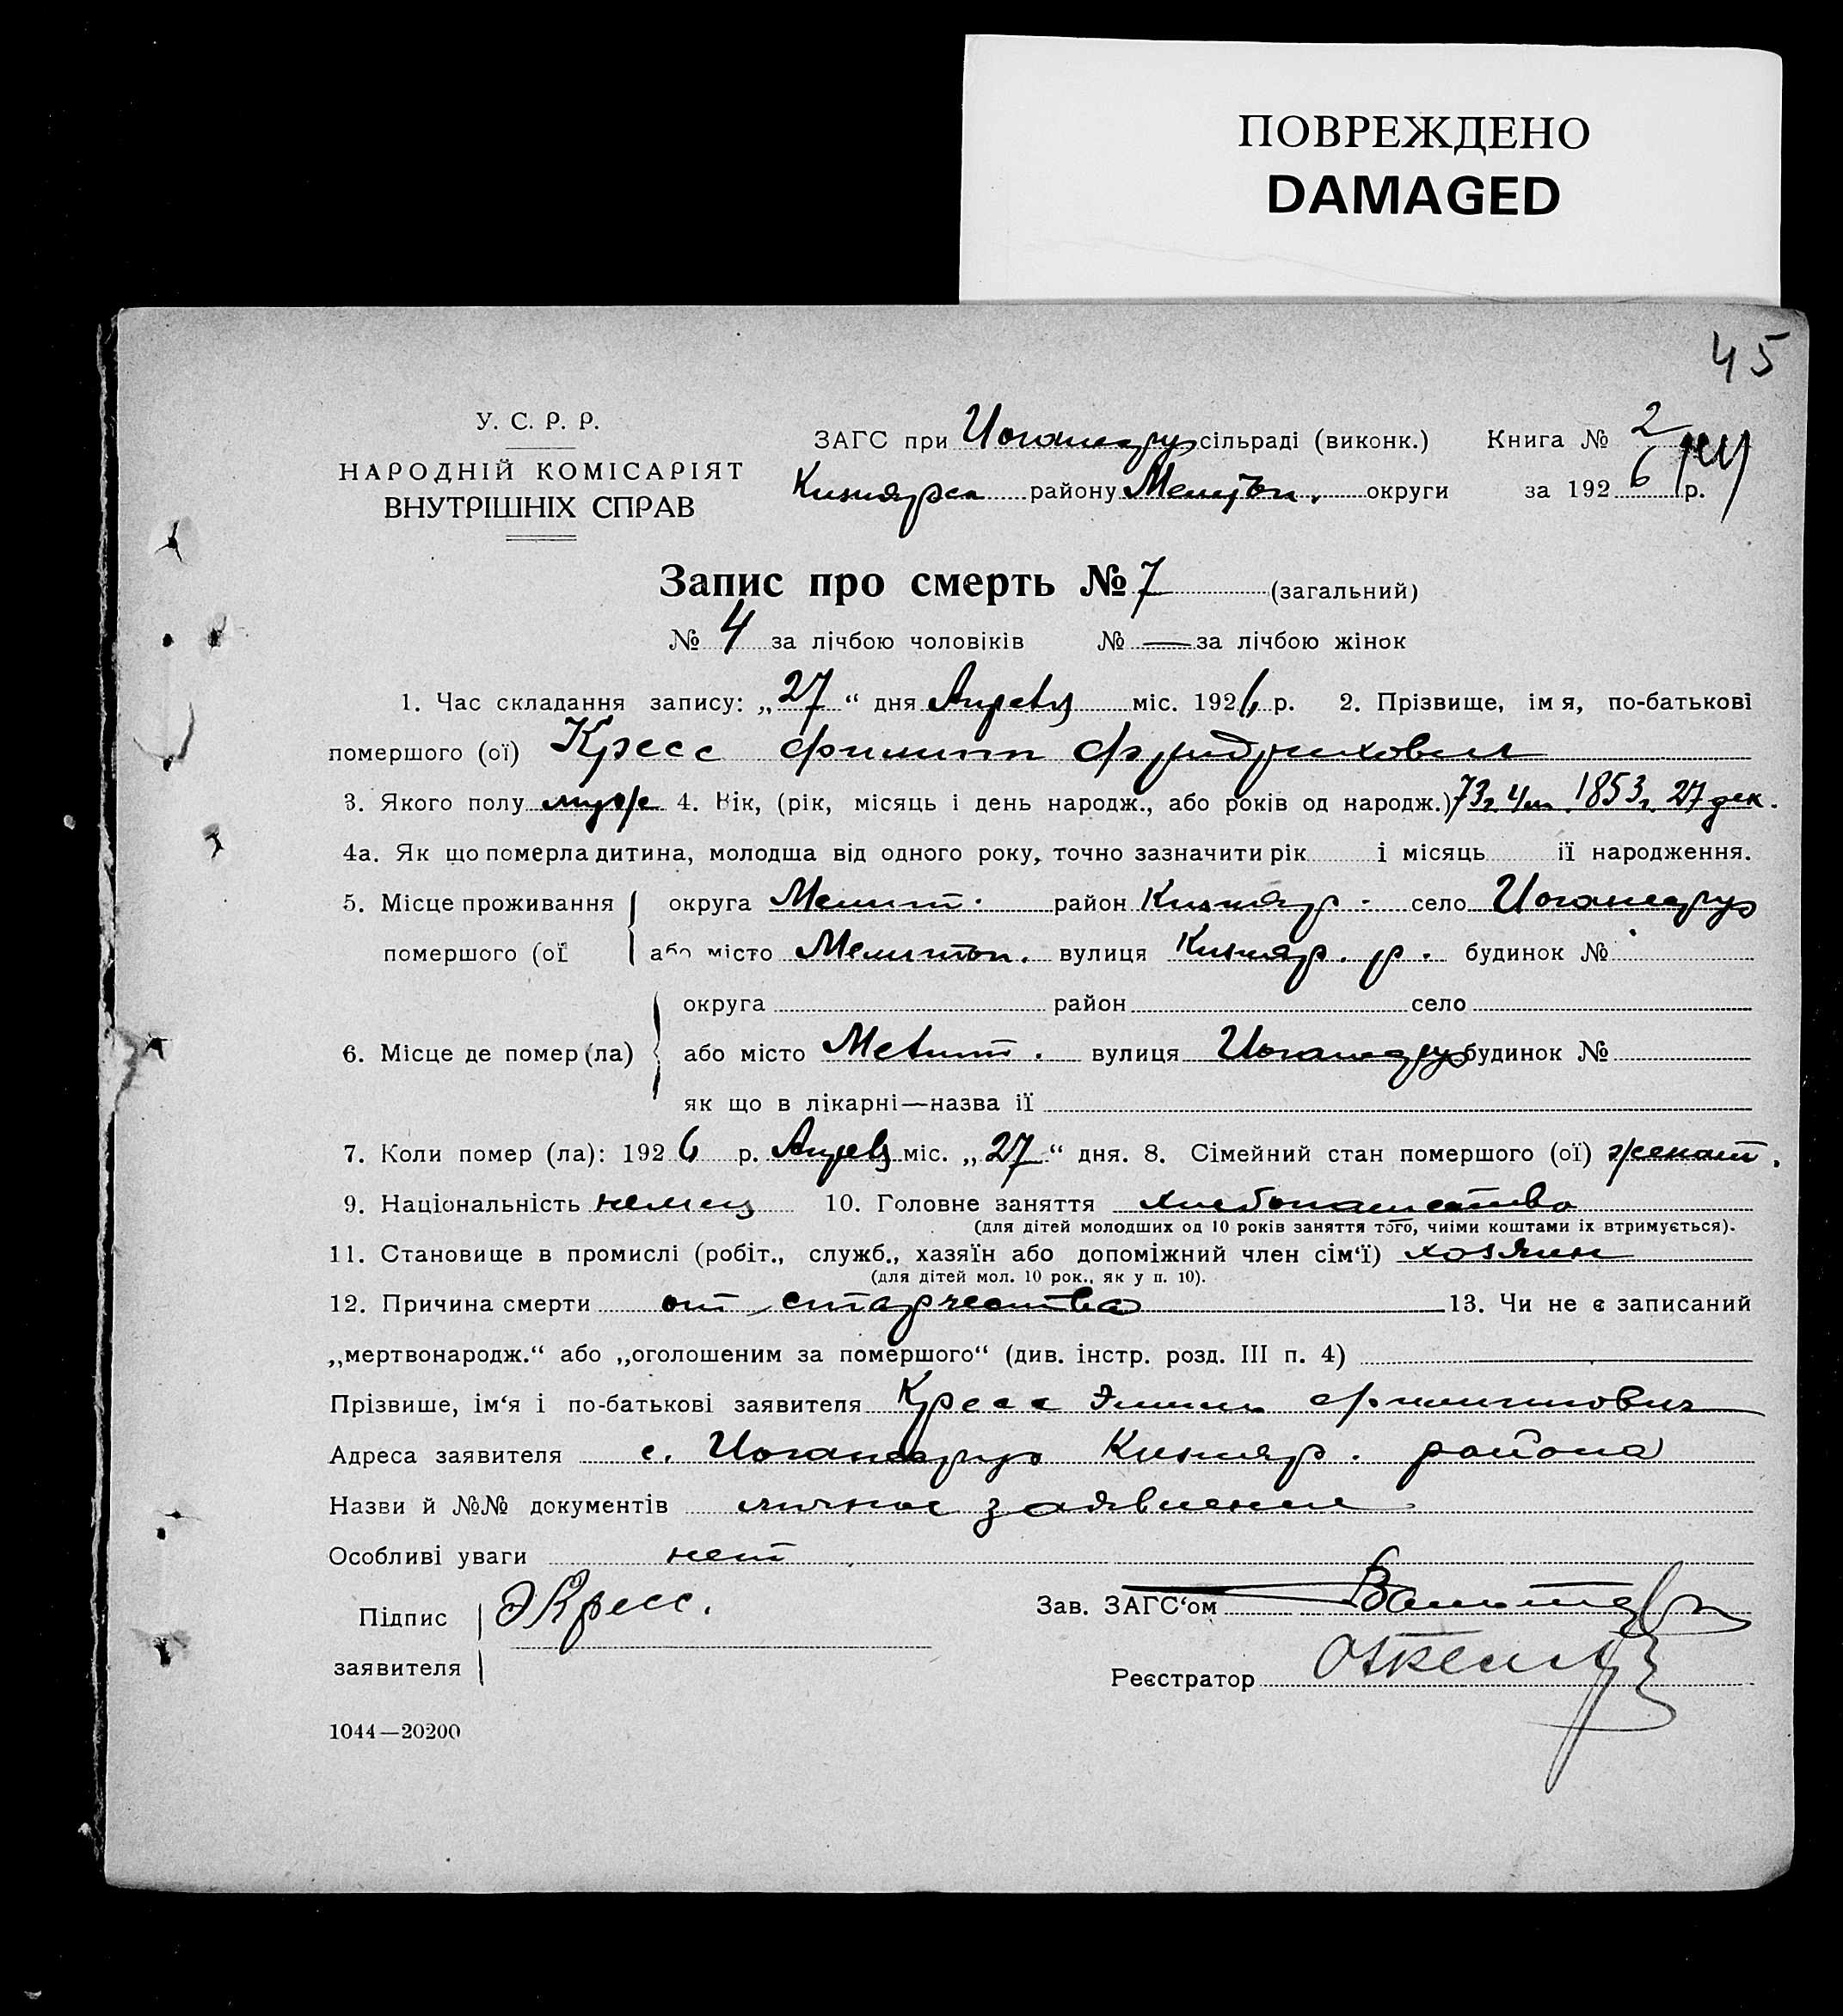 ПОВРЕЖДЕНО
DAMAGED
45
У. С. Р. Р.
НАРОДНІЙ КОМІСАРІЯТ
ВНУТРІШНІХ СПРАВ
ЗАГС при Иоганедру сільраді (виконк.) Книга № 2
Кизиярск району Мелитоп. округи за 1926 р.
Запис про смерть № 7 (загальний)
№ 4 за лічбою чоловіків № — за лічбою жінок
1. Час складання запису: „27“ дня Апреля міс. 1926 р. 2. Прізвище, ім я, по-батькові
помершого (ої) Кресс Филипп Фридрихович
3. Якого полу муж 4. Вік, (рік, місяць і день народж., або років од народж.) 73г. 4м. 1853г. 27 дек.
4а. Як що померла дитина, молодша від одного року, точно зазначити рік і місяць її народження.
5. Місце проживання округа Мелит. район Кизияр. село Иоганедру
помершого (ої або місто Мелитоп. вулиця Кизияр. р. будинок №
округа район село
6. Місце де помер (ла) або місто Мелит. вулиця Иоганедру будинок №
як що в лікарні—назва її
7. Коли помер (ла): 1926 р. Апреля міс. „27“ дня. 8. Сімейний стан помершого (ої) женат.
9. Національність немец 10. Головне заняття хлебопашество
(для дітей молодших од 10 років заняття того, чиїми коштами їх втримується).
11. Становище в промислі (робіт., служб., хазяїн або допоміжний член сім‘ї) хозяин
(для дітей мол. 10 рок., як у п. 10).
12. Причина смерти от старчества 13. Чи не є записаний
„мертвонародж.“ або „оголошеним за помершого“ (див. інстр. розд. III п. 4)
Прізвише, ім‘я і по-батькові заявителя Кресс Эмиль Филиппович
Адреса заявителя с. Иоганедру Кизияр. района
Назви й №№ документів личное заявление
Особливі уваги нет
Підпис Э Кресс.
заявителя
Зав. ЗАГС‘ом
Реєстратор
1044—20200